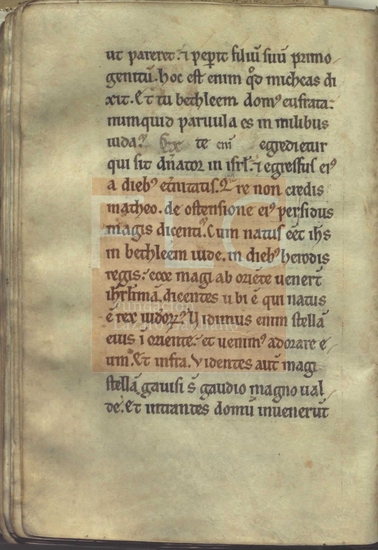 ut pareret. ⁊ peperit filiū suū primo
genitū. hoc est enim qđ micheas di
xit. Et tu bethleem domꝰ eufrata:
numquid paruula es in milibus
iuda? Ex te eni egredietur
qui sit dn̄ator in isrl̄. ⁊ egressus eiꝰ
a diebꝰ et̄nitatis. Q̄re non credis
matheo. de ostensione eiꝰ perfidus
magis dicenti. Cum natus eēt ihs
in bethleem iude. in diebꝰ herodis
regis: ecce magi ab oriēte venert̄
ihrlimā. dicentes ubi ē qui natus
ē rex iudoꝝ? Vidimus enim stellā
eius ī oriente: et venimꝰ adorare e
um. Et infra. Videntes aut̄ magi
stellā gauisi s̄ gaudio magno ual
de. Et intrantes domū inuenerūt